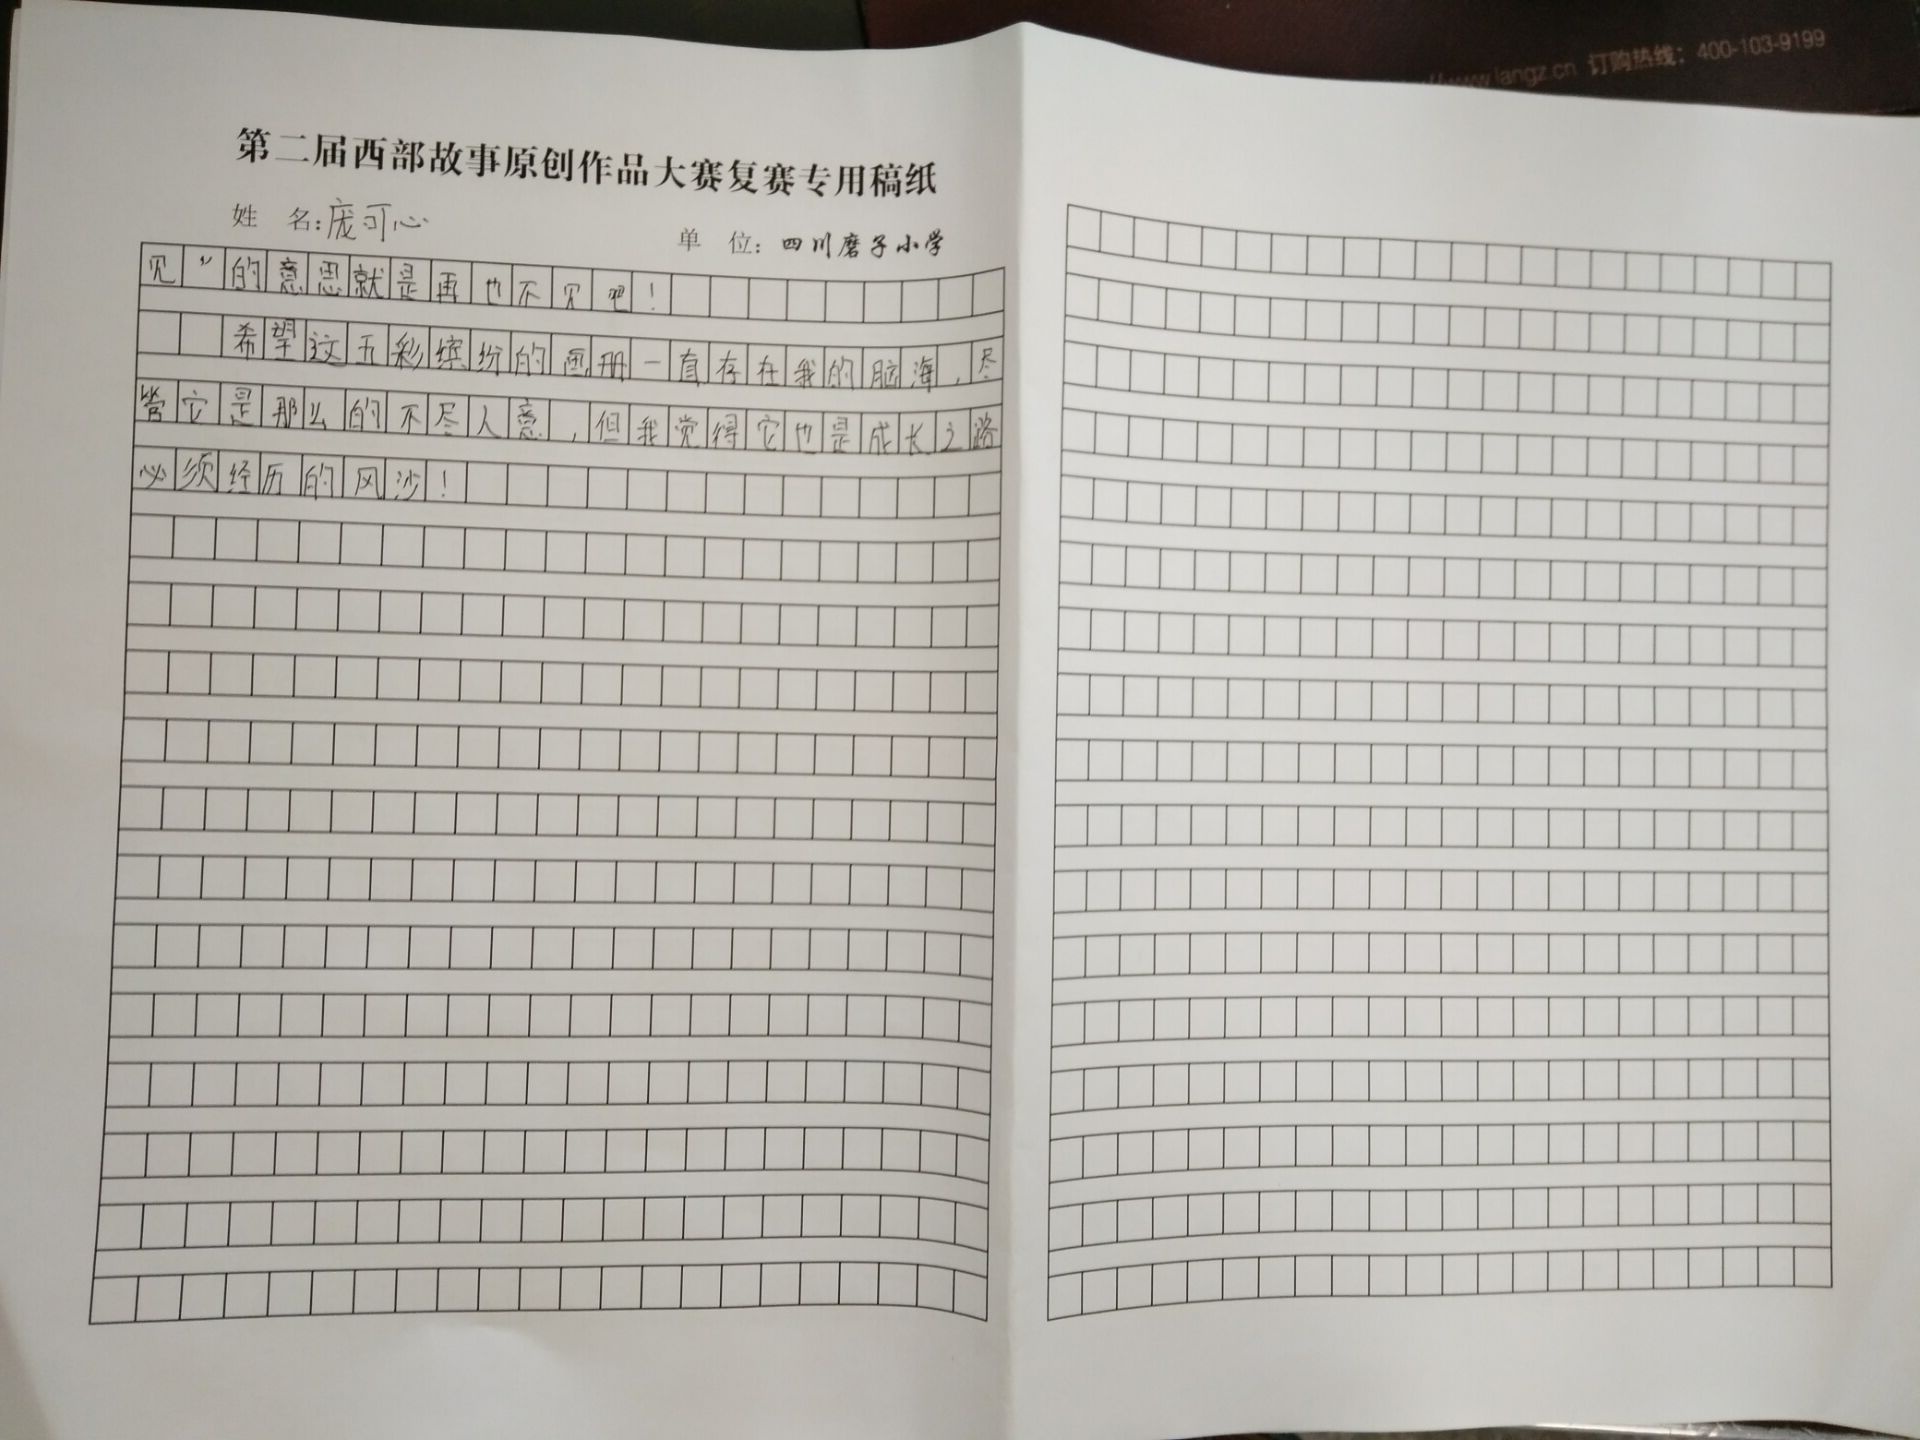 www.langz.cn 订购热线：400-103-9199
第二届西部故事原创作品大赛复赛专用稿纸
姓 名：庞可心
单 位：四川磨子小学
见”的意思就是再也不见吧！
希望这五彩缤纷的画册一直存在我的脑海，尽
管它是那么的不尽人意，但我觉得它也是成长之路
必须经历的风沙！